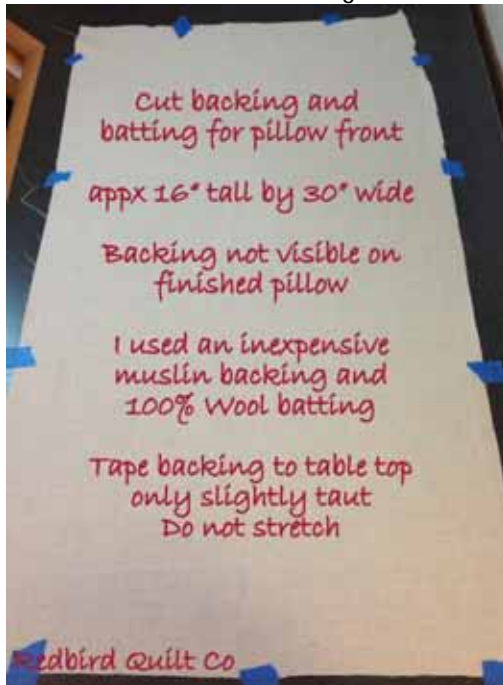 Cut backing and
batting for pillow front
appx 16" tall by 30" wide
Backing not visible on
finished pillow
I used an inexpensive
muslin backing and
100% Wool batting
Tape backing to table top
only slightly taut
Do not stretch
Redbird Quilt Co